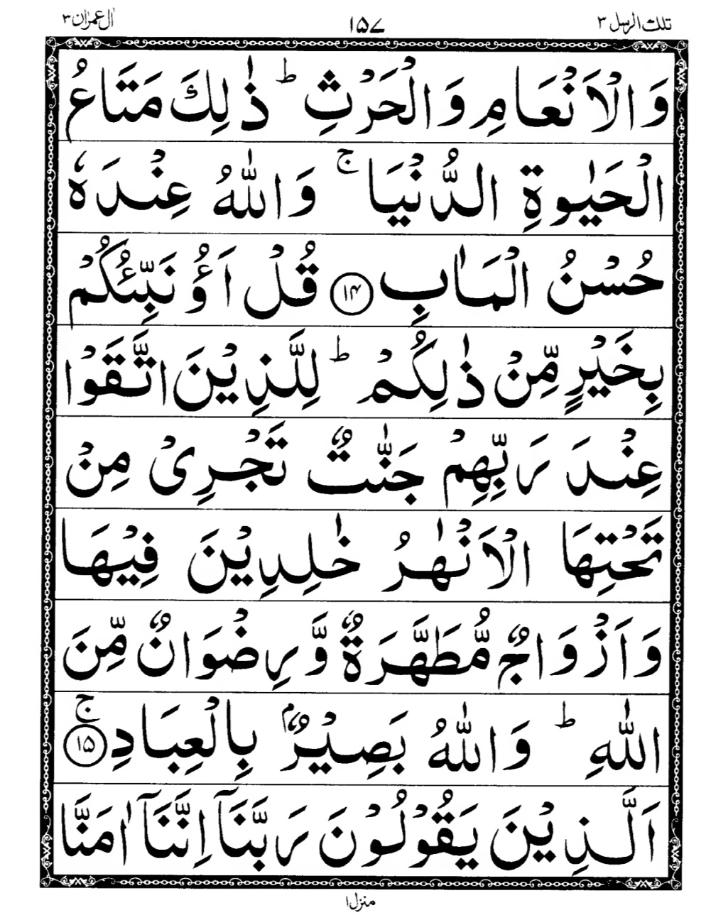 تلك الرسل ٣ ١٥٧ اٰل عمرٰن ٣
وَالْاَنْعَامِ وَالْحَرْثِ ؕ ذٰلِكَ مَتَاعُ
الْحَيٰوةِ الدُّنْيَا ۚ وَاللّٰهُ عِنْدَهٗ
حُسْنُ الْمَاٰبِ ﴿۱۴﴾ قُلْ اَؤُنَبِّئُكُمْ
بِخَيْرٍ مِّنْ ذٰلِكُمْ ؕ لِلَّذِيْنَ اتَّقَوْا
عِنْدَ رَبِّهِمْ جَنّٰتٌ تَجْرِىْ مِنْ
تَحْتِهَا الْاَنْهٰرُ خٰلِدِيْنَ فِيْهَا
وَاَزْوَاجٌ مُّطَهَّرَةٌ وَّرِضْوَانٌ مِّنَ
اللّٰهِ ؕ وَاللّٰهُ بَصِيْرٌۢ بِالْعِبَادِ ۚ﴿۱۵﴾
اَلَّذِيْنَ يَقُوْلُوْنَ رَبَّنَآ اِنَّنَآ اٰمَنَّا
منزل ١